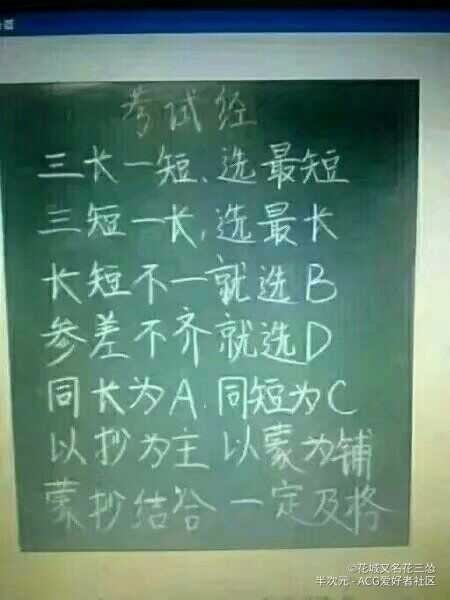 考试经
三长一短、选最短
三短一长,选最长
长短不一就选B
参差不齐就选D
同长为A.同短为C
以抄为主 以蒙为铺
蒙抄结合 一定及格
©花城又名花三怂
半次元 - ACG爱好者社区